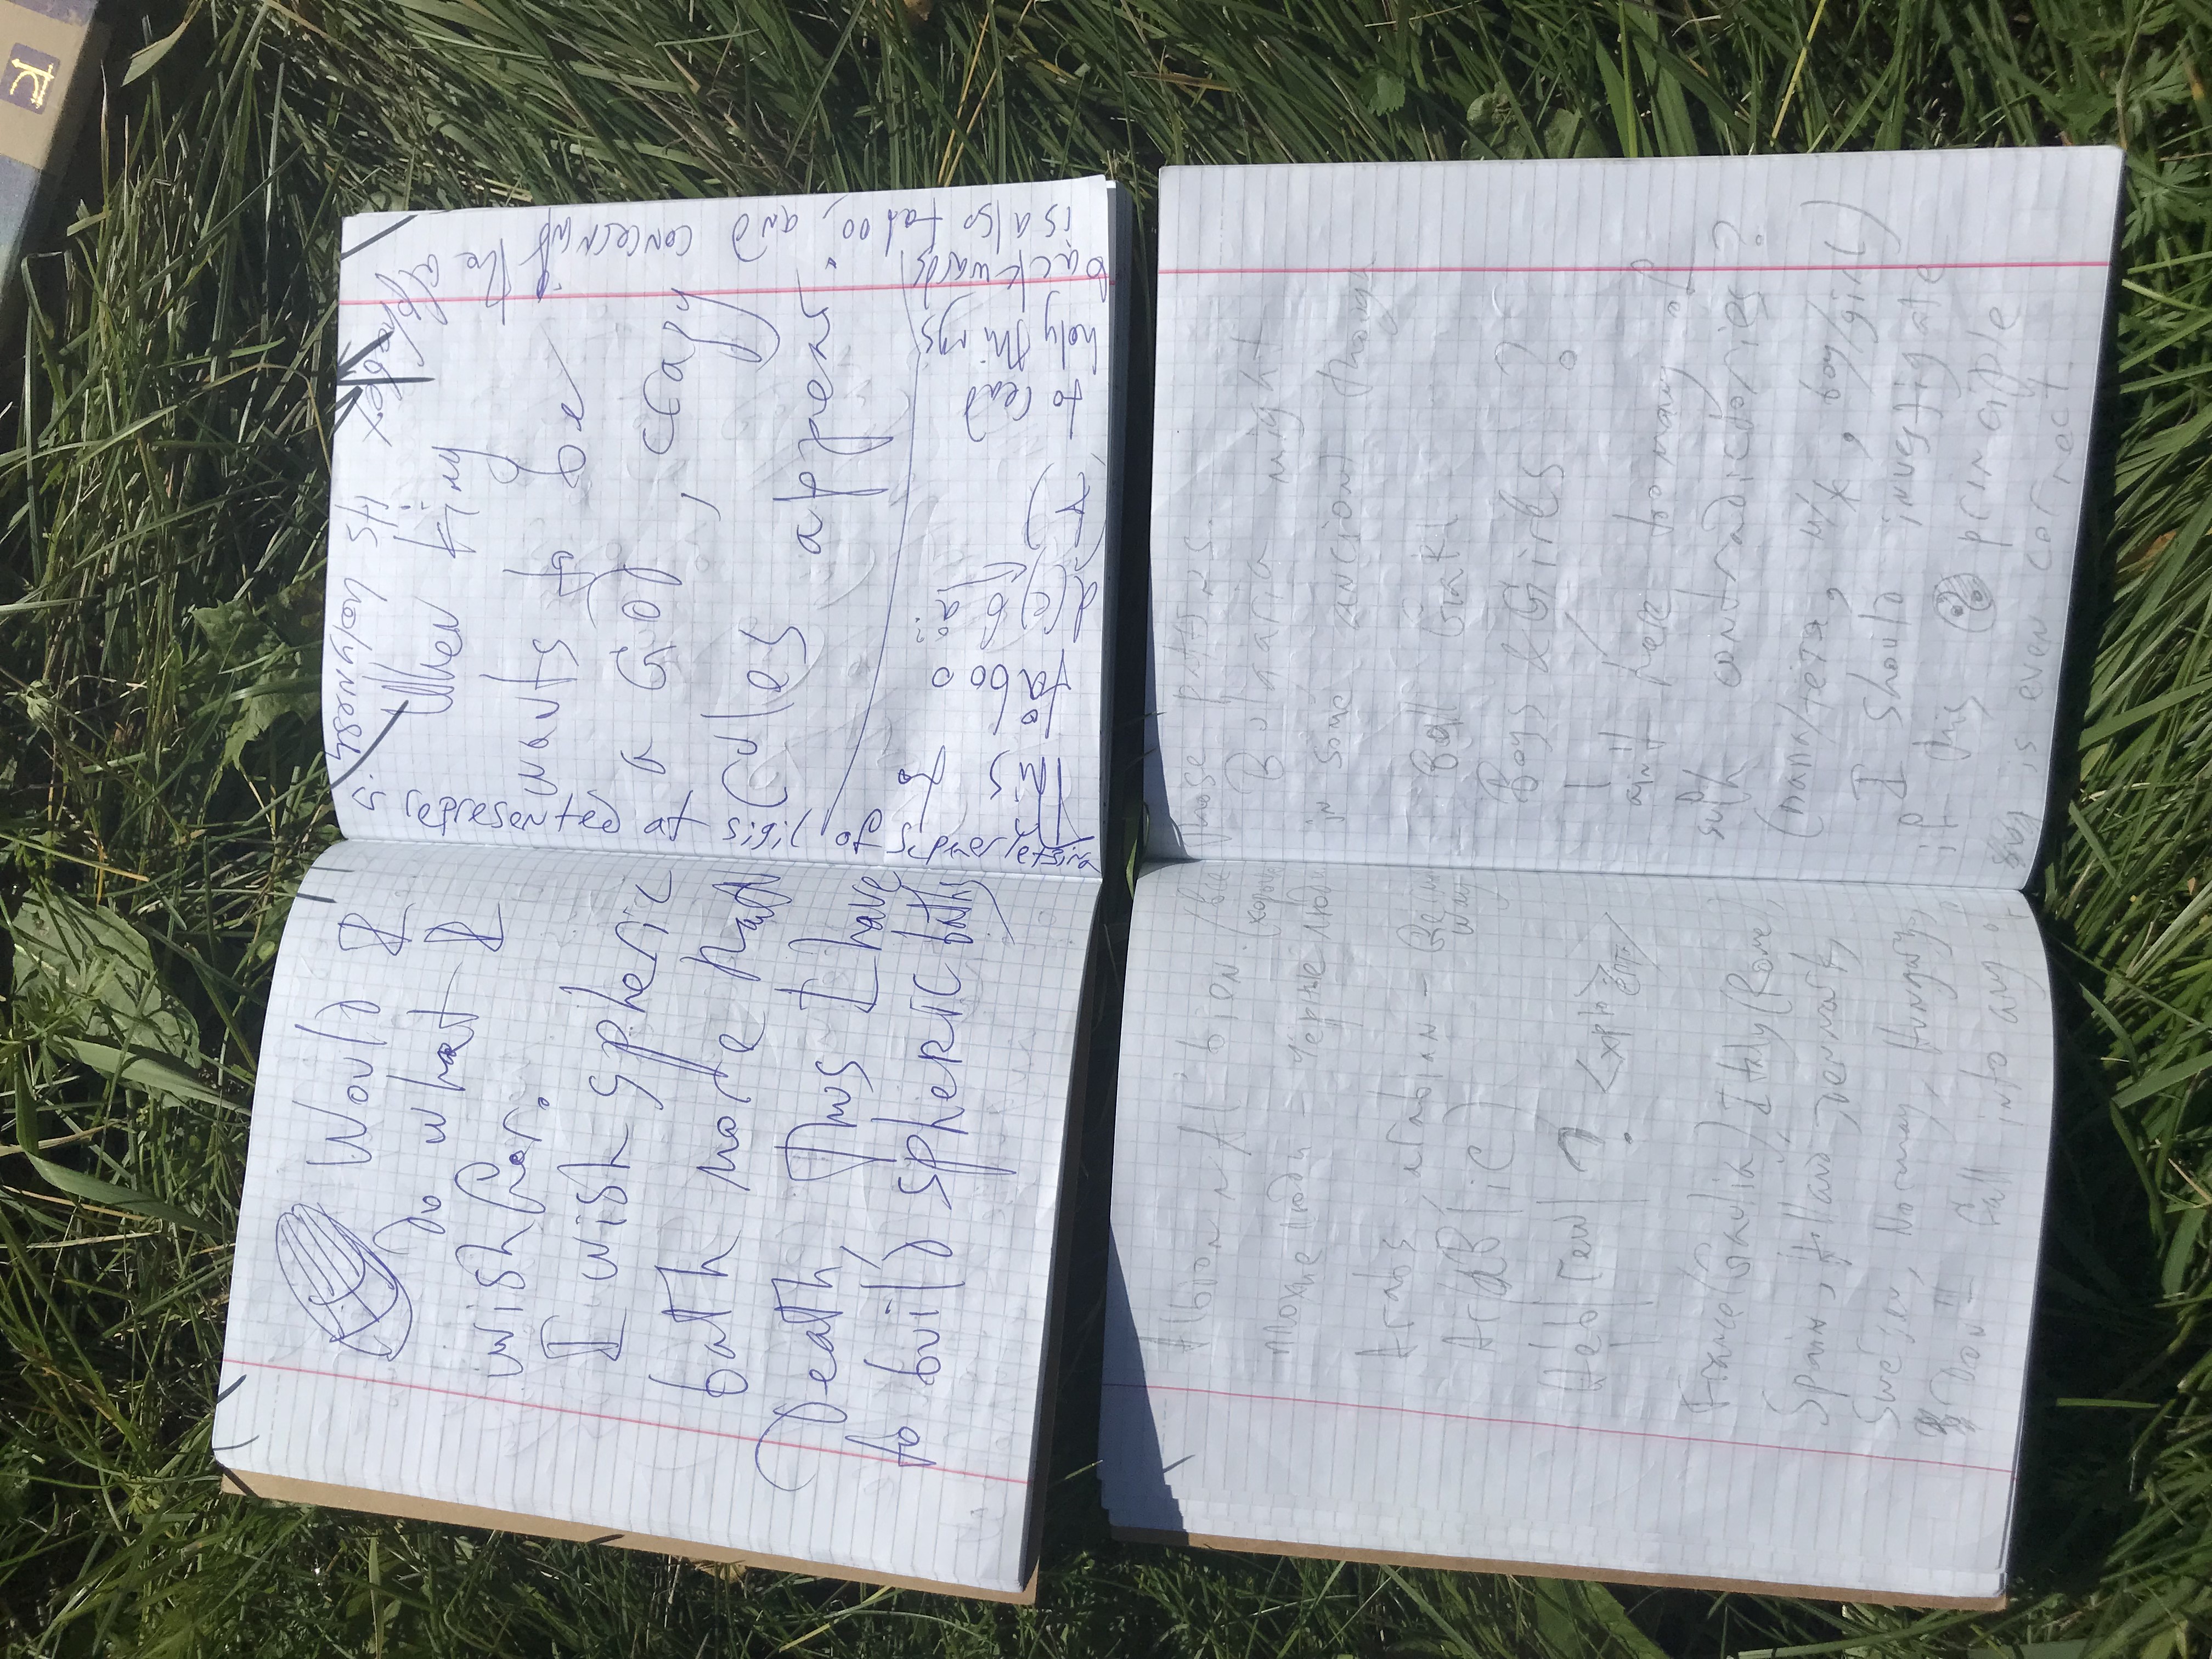 Would I
do what I
wish for.
I wish spheric
bath more than
Death, Thus I have
to build spheric baths
When king
wants to be
a GOD, crazy
rules appear.
my
sin
taboo
to read
holy things
backwards
is also taboo, and concerning the
its holyness
is represented at sigil of
Albion ~ Al'bion.
плохие люди – чёрные люди
Arabs, arabian –
Ar(aB(ic)
Heb|rew| ?
France(Gaulia), Italy(Rome),
Spain, Holland, Denmark,
Sweden, Norway, Hungary,
Don't fall into any of
those pttrns.
Bulgaria might
in some ancient though
Ball Giaki
Boys & Girls ?
ain't here too many of
such contradictories ?
(папа/тётя, м/ж, boy/girl)
I should investigate
if this ☯ principle
is even correct.